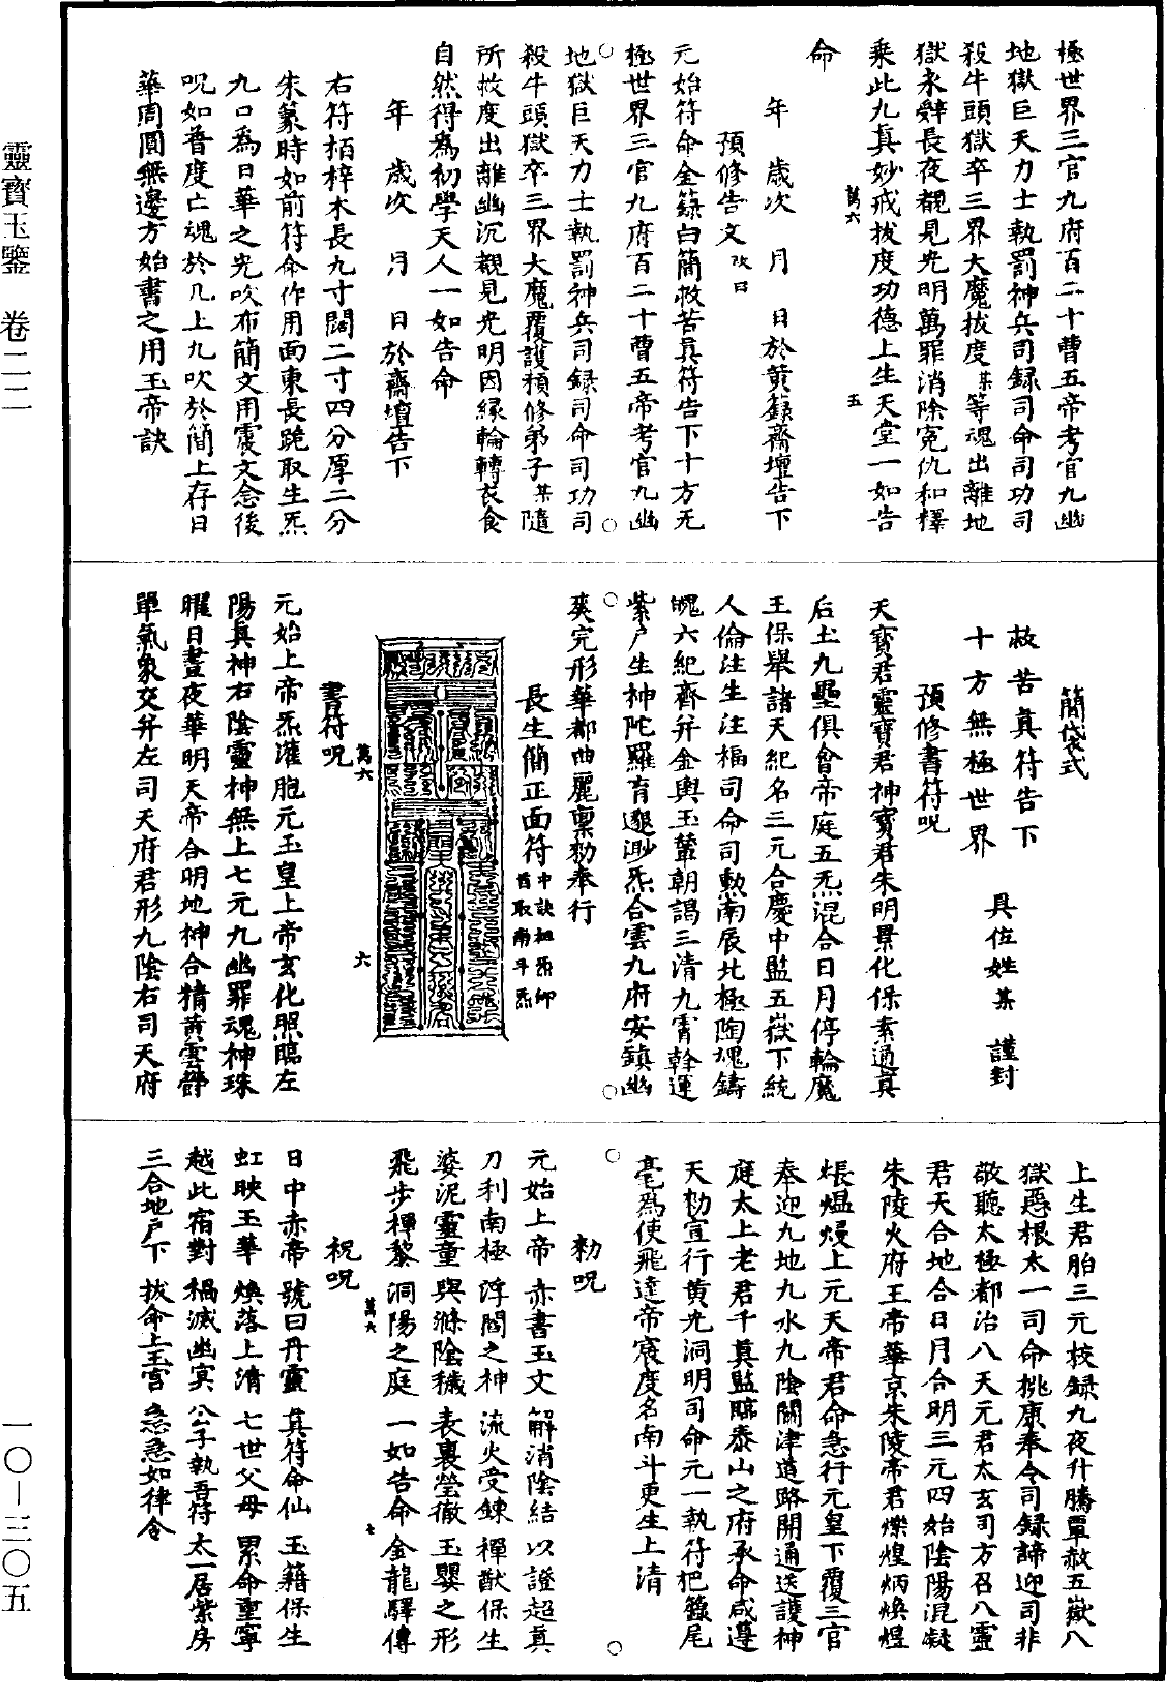 極世界三官九府百二十曹五帝考官九幽
地獄巨天力士執罰神兵司録司命司功司
殺牛頭獄卒三界大魔拔度某等魂出離地
獄永辭長夜覩見光明萬罪消除冤仇和釋
乘此九真妙戒拔度功德上生天堂一如告
命
萬六
五
年　歲次　月　日於黄籙齋壇告下
預修告文改日
元始符命金籙白簡救苦真符告下十方无
極世界三官九府百二十曹五帝考官九幽
地獄巨天力士執罰神兵司録司命司功司
殺牛頭獄卒三界大魔覆護預修弟子某隨
所救度出離幽沉覩見光明因緣輪轉衣食
自然得爲初學天人一如告命
年　歲次　月　日於齋壇告下
右符栢梓木長九寸闊二寸四分厚二分
朱篆時如前符命作用面東長跪取生炁
九口爲日華之光吹布簡文用震文念後
呪如普度亡魂於几上九吹於簡上存日
華周圓無邊方始書之用玉帝訣
簡袋式
救苦真符告下
十方無極世界　具位姓某　謹封
預修書符呪
天寶君靈寶君神寶君朱明景化保素通真
后土九壘俱會帝庭五炁混合日月停輪魔
王保舉諸天紀名三元合慶中監五嶽下統
人倫注生注福司命司勳南辰北極陶魂鑄
魄六紀齊并金輿玉輦朝謁三清九霄斡運
紫户生神陀羅育邈渺炁合雲九府安鎮幽
爽完形華都曲麗稟勑奉行
長生簡正面符中訣祖炁卯酉取南斗炁
書符呪
萬六
六
元始上帝炁灌胞元玉皇上帝玄化照臨左
陽真神右陰靈神無上七元九幽罪魂神珠
曜日晝夜華明天帝合明地神合精黄雲靜
單氣象交并左司天府君形九陰右司天府
上生君胎三元校録九夜升騰單赦五嶽八
獄惡根太一司命桃康奉令司録諦迎司非
敬聽太極都治八天元君太玄司方召八靈
君天合地合日月合明三元四始陰陽混凝
朱陵火府王帝華京朱陵帝君爍煌炳煥煌
煜熅熳上元天帝君命急行元皇下覆三官
奉迎九地九水九陰關津道路開通送護神
庭太上老君千真監臨泰山之府承命咸遵
天勑宣行黄光洞明司命元一執符把籙尾
毫爲使飛達帝宸度名南斗更生上清
勑呪
元始上帝　赤書玉文　解消陰結　以證超真
刀利南極　浮閻之神　流火受鍊　禪猷保生
婆泥靈童　與滌陰穢　表裏瑩徹　玉嬰之形
飛步禪黎　洞陽之庭　一如告命　金龍驛傳
祝呪
萬六
七
日中赤帝　號曰丹靈　真符命仙　玉籍保生
虹映玉華　煥落上清　七世父母　累命重寧
越此宿對　禍滅幽冥　公子執吾符　太一居紫房
三合地户下　拔命上玉宫　急急如律令
靈寶玉鑒　卷二二
一〇－三〇五